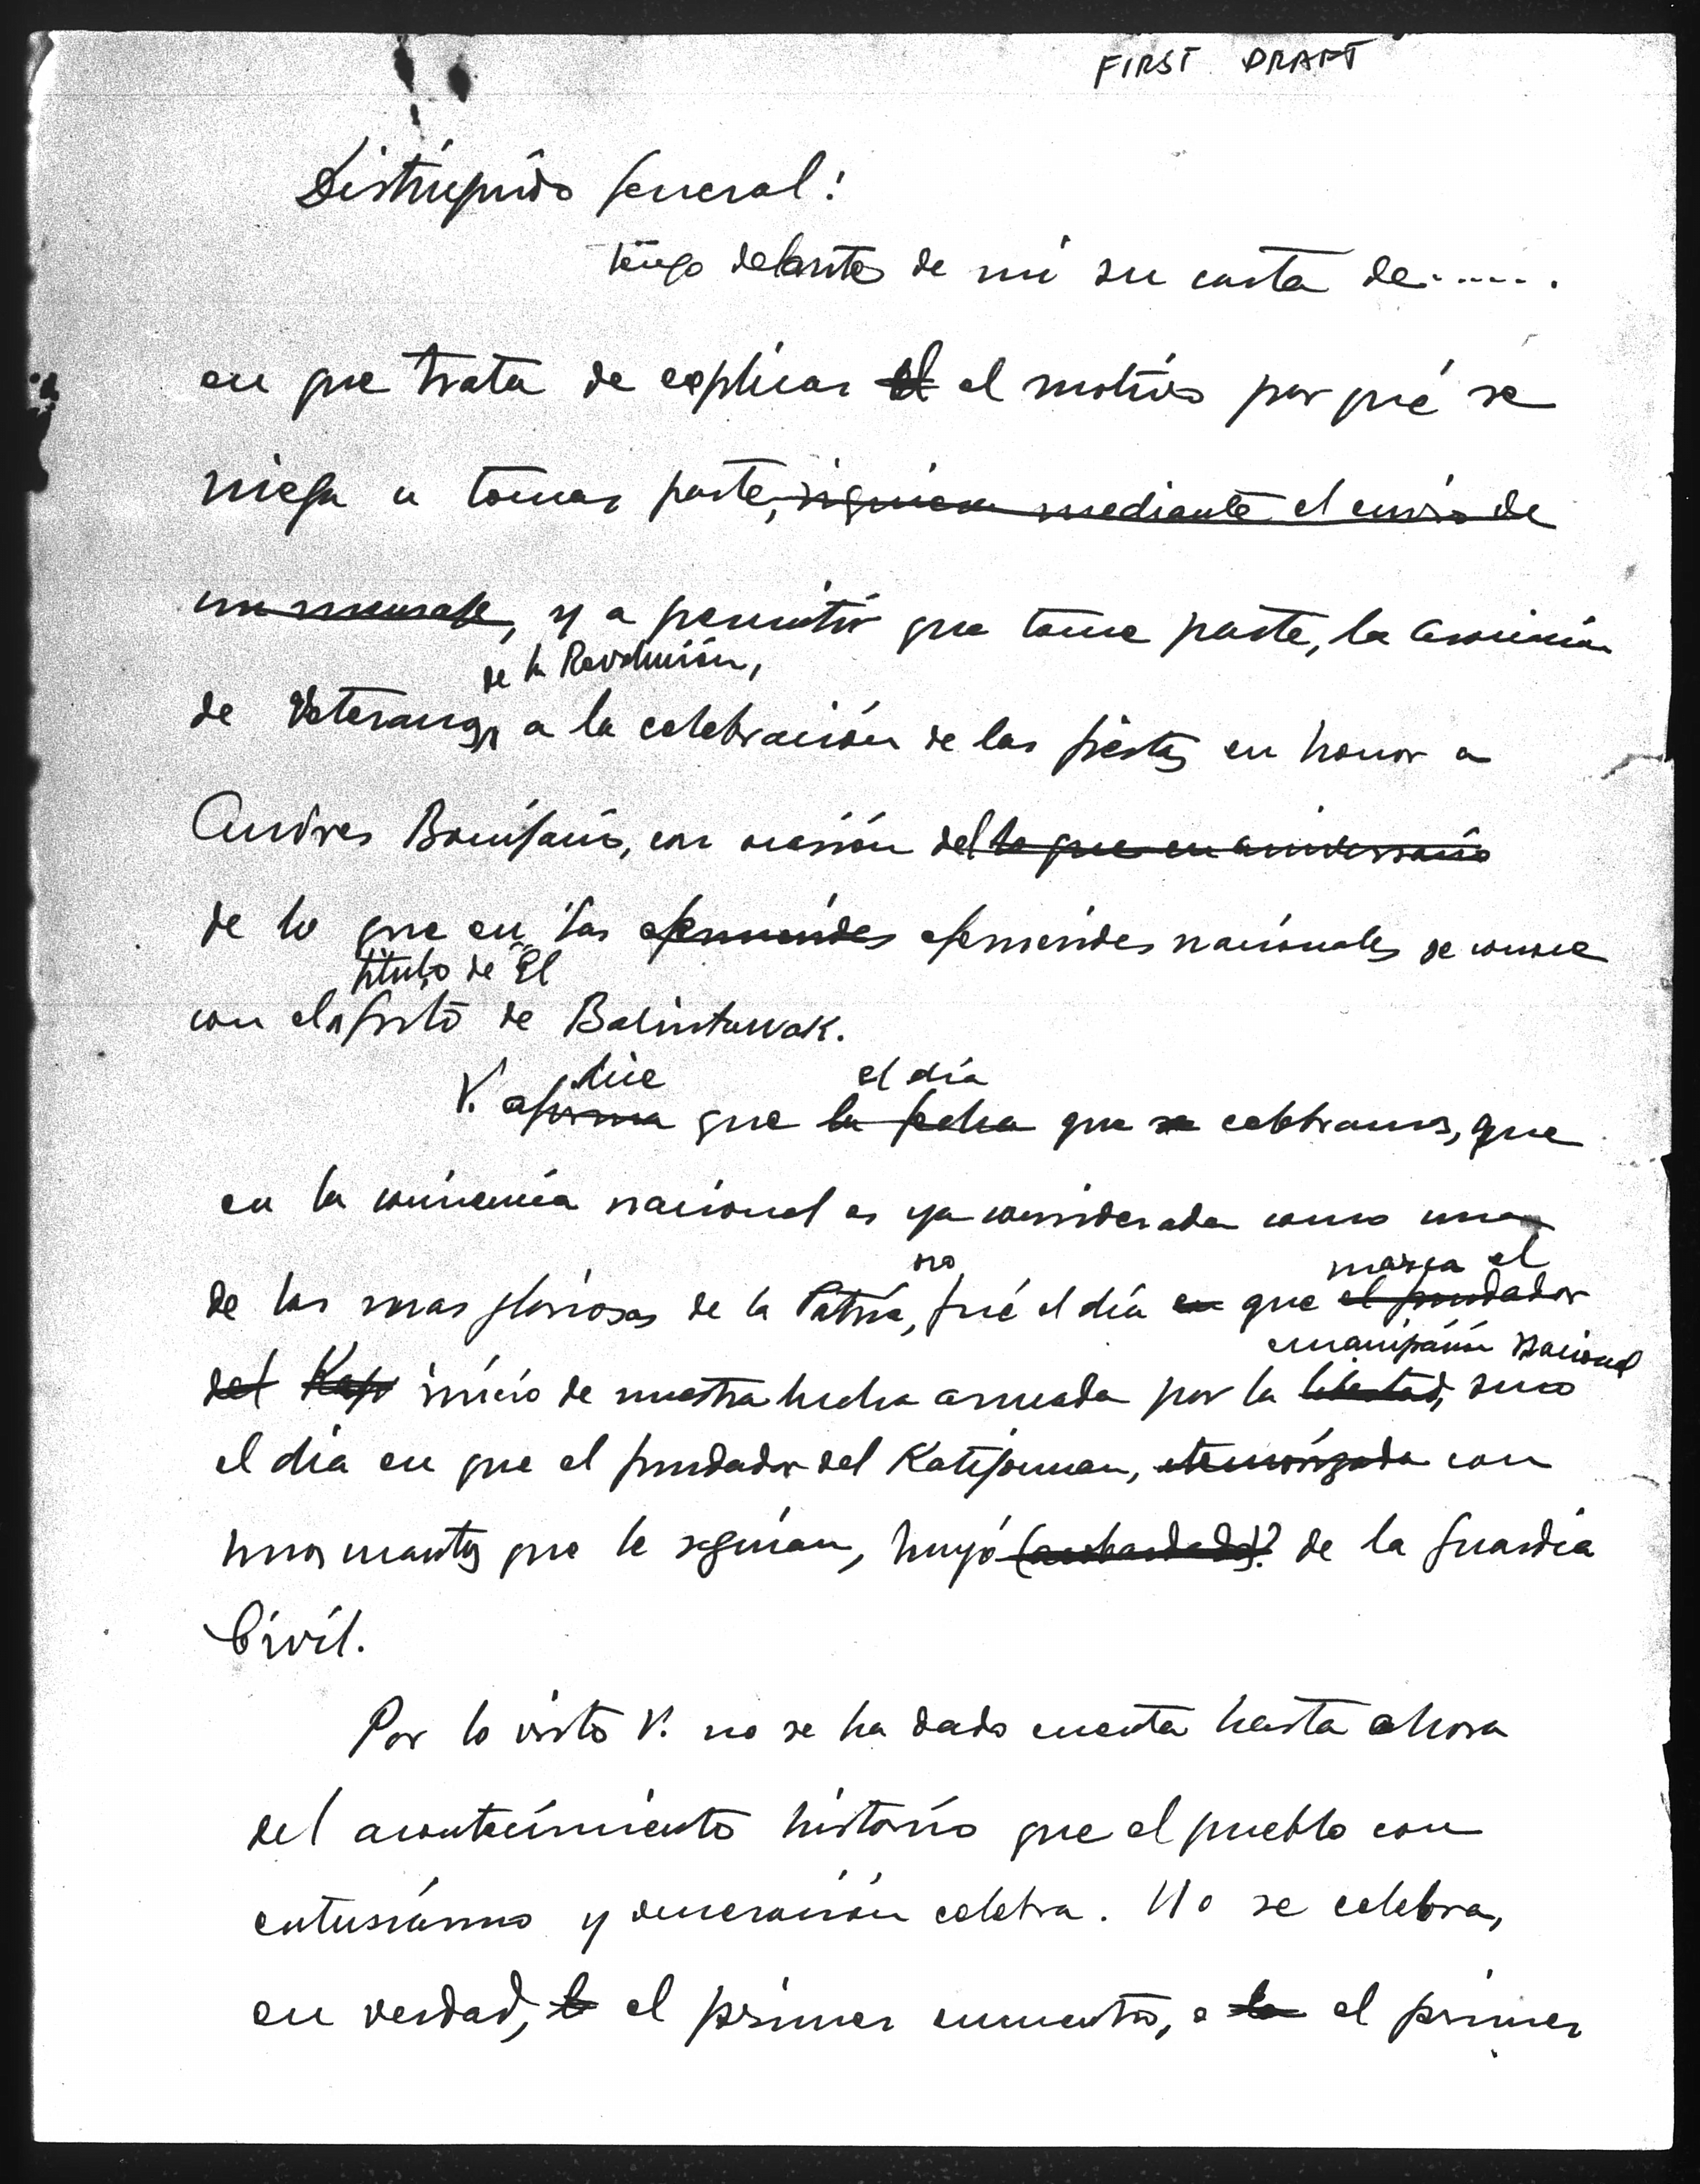 FIRST DRAFT
Distinguido General:
Tengo delante de mi su carta de......
en que trata de explicar el el motivo por qué se
niega a tomar parte, siquiera mediante el envio de
un mensaje, y a permitir que tome parte, la Asociación
de la Revolución,
de Veteranos, a la celebración de las fiestas en honor a
Andres Bonifacio, con ocasión del lo que en aniversario
de lo que en las efemérides efemérides nacionales se conoce
título de "El
con el grito de Balintawak.
dice el día
V. afirma que la fecha que se celebramos, que
en la conciencia nacional es ya considerada como una
no marca el
de las mas gloriosas de la Patria, fué el día en que el fundador
emancipación nacional
del Kap inicio de nuestra lucha armada por la libertad, sino
el dia en que el fundador del Katipunan, atemorizado con
unos cuantos que le seguían, huyó (acobardado)? de la Guardia
Civil.
Por lo visto V. no se ha dado cuenta hasta ahora
del acontecimiento histórico que el pueblo con
entusiásmo y veneración celebra. No se celebra,
en verdad, el primer encuentro, o la el primer